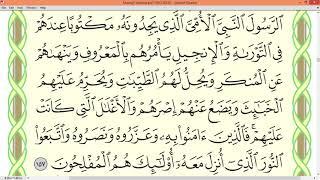 ٱلرَّسُولَ ٱلنَّبِيَّ ٱلْأُمِّيَّ ٱلَّذِى يَجِدُونَهُۥ مَكْتُوبًا عِندَهُمْ
فِى ٱلتَّوْرَىٰةِ وَٱلْإِنجِيلِ يَأْمُرُهُم بِٱلْمَعْرُوفِ وَيَنْهَىٰهُمْ
عَنِ ٱلْمُنكَرِ وَيُحِلُّ لَهُمُ ٱلطَّيِّبَٰتِ وَيُحَرِّمُ عَلَيْهِمُ
ٱلْخَبَٰٓئِثَ وَيَضَعُ عَنْهُمْ إِصْرَهُمْ وَٱلْأَغْلَٰلَ ٱلَّتِى كَانَتْ
عَلَيْهِمْ ۚ فَٱلَّذِينَ ءَامَنُوا۟ بِهِۦ وَعَزَّرُوهُ وَنَصَرُوهُ وَٱتَّبَعُوا۟
ٱلنُّورَ ٱلَّذِىٓ أُنزِلَ مَعَهُۥٓ ۙ أُو۟لَٰٓئِكَ هُمُ ٱلْمُفْلِحُونَ ١٥٧